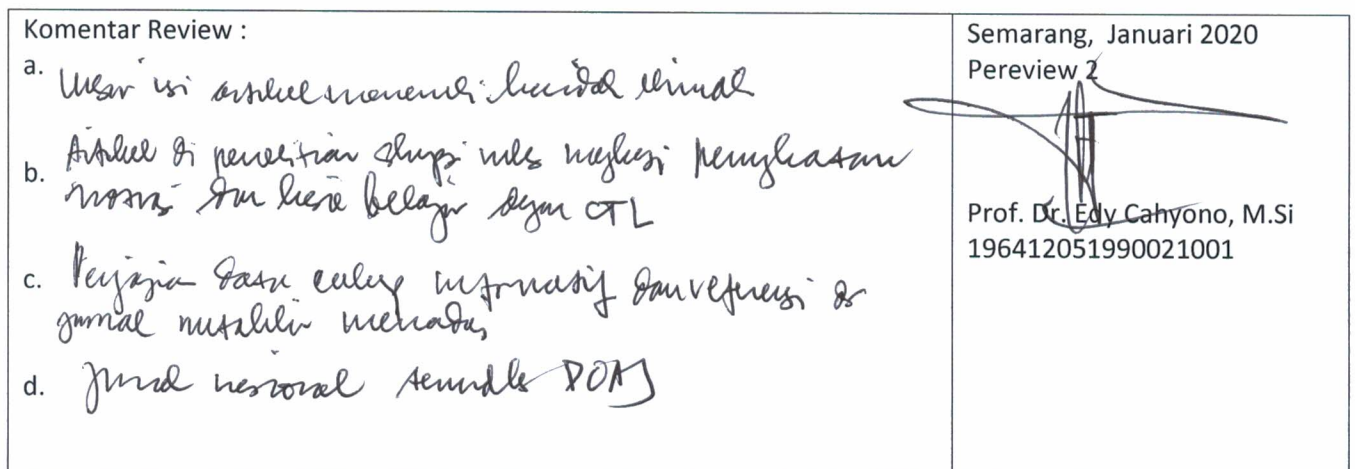 Komentar Review :
a. Unsur isi artikel memenuhi kaidah ilmiah
b. Artikel penelitian
motivasi dan hasil belajar dengan CTL
c. Penyajian data cukup informatif dan referensi dr
jurnal mutakhir memadai
d. Jurnal nasional terindeks DOAJ
Semarang, Januari 2020
Pereview 2
Prof. Dr. Edy Cahyono, M.Si
196412051990021001